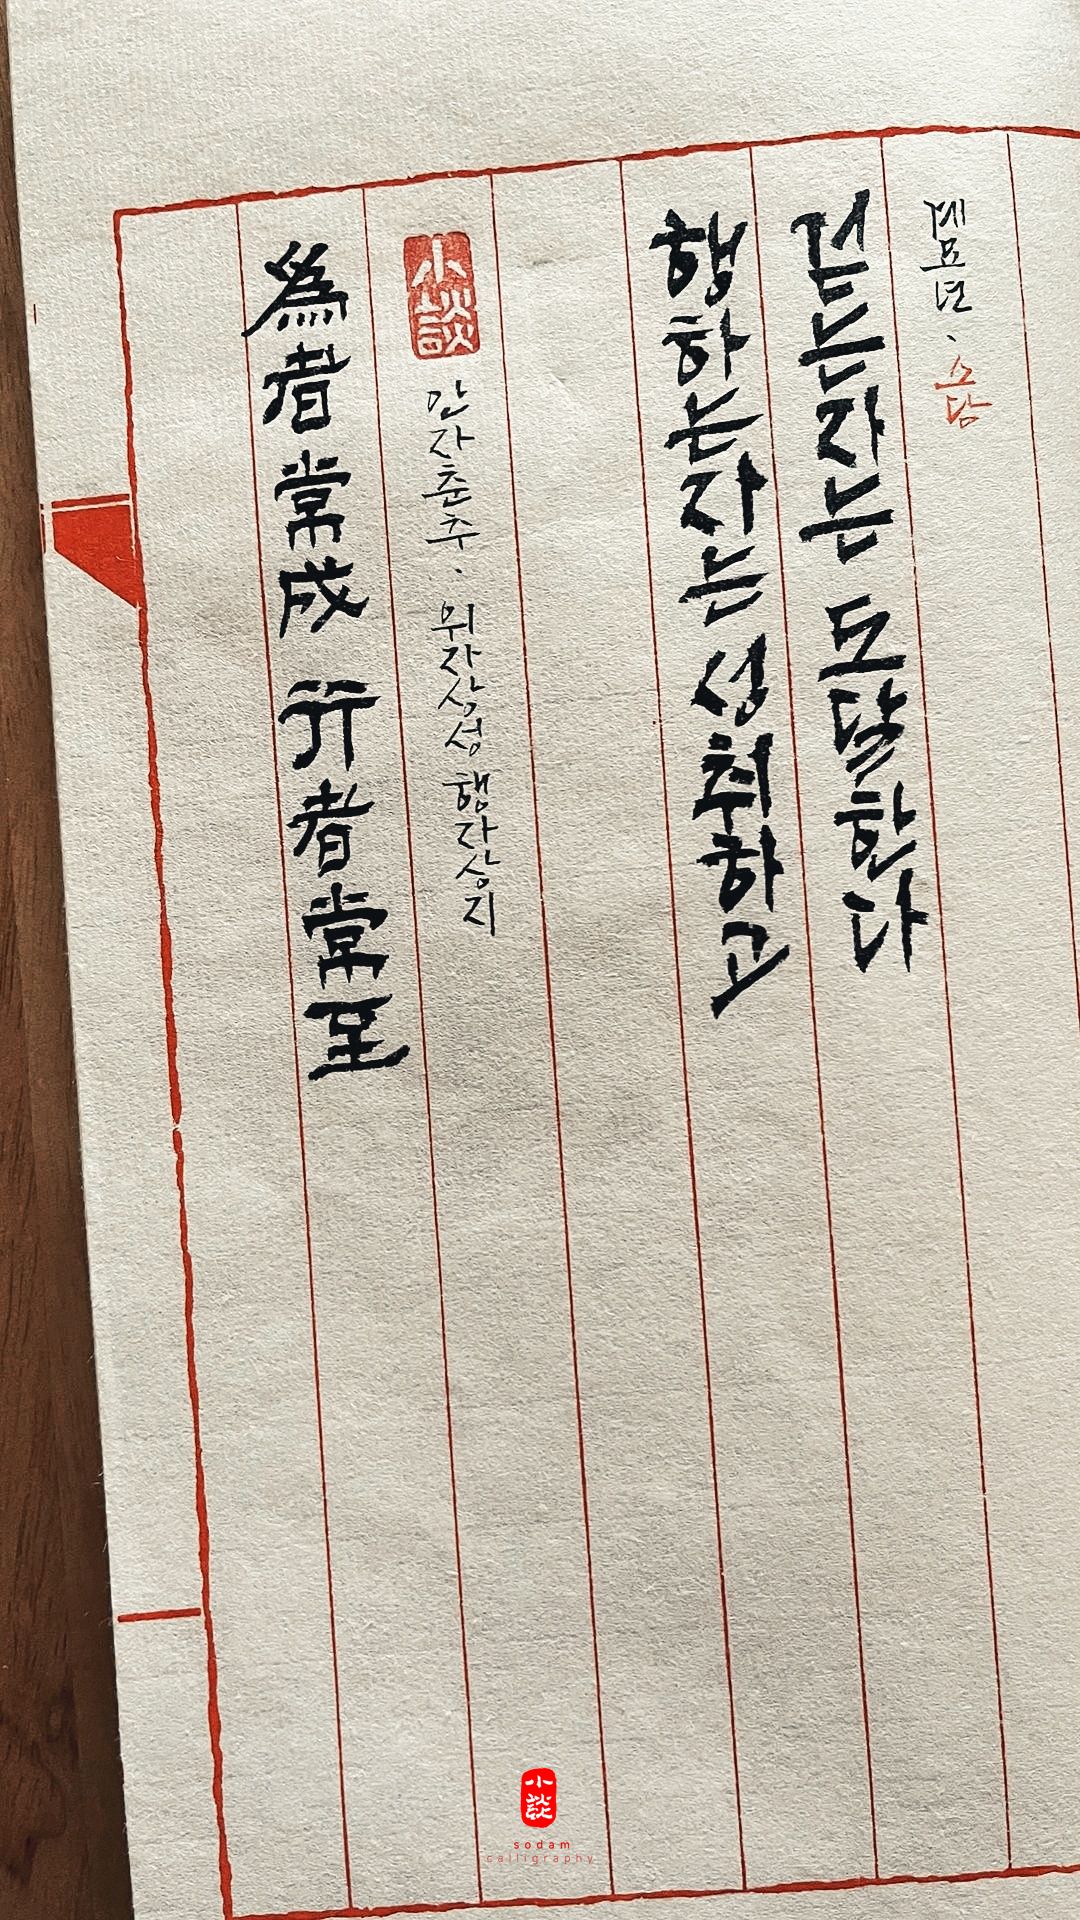 爲者常成 行者常至
小談
안자춘추、위자상성 행자상지
행하는자는 성취하고
걷는자는 도달한다
계묘년、소담
小談
sodam
calligraphy